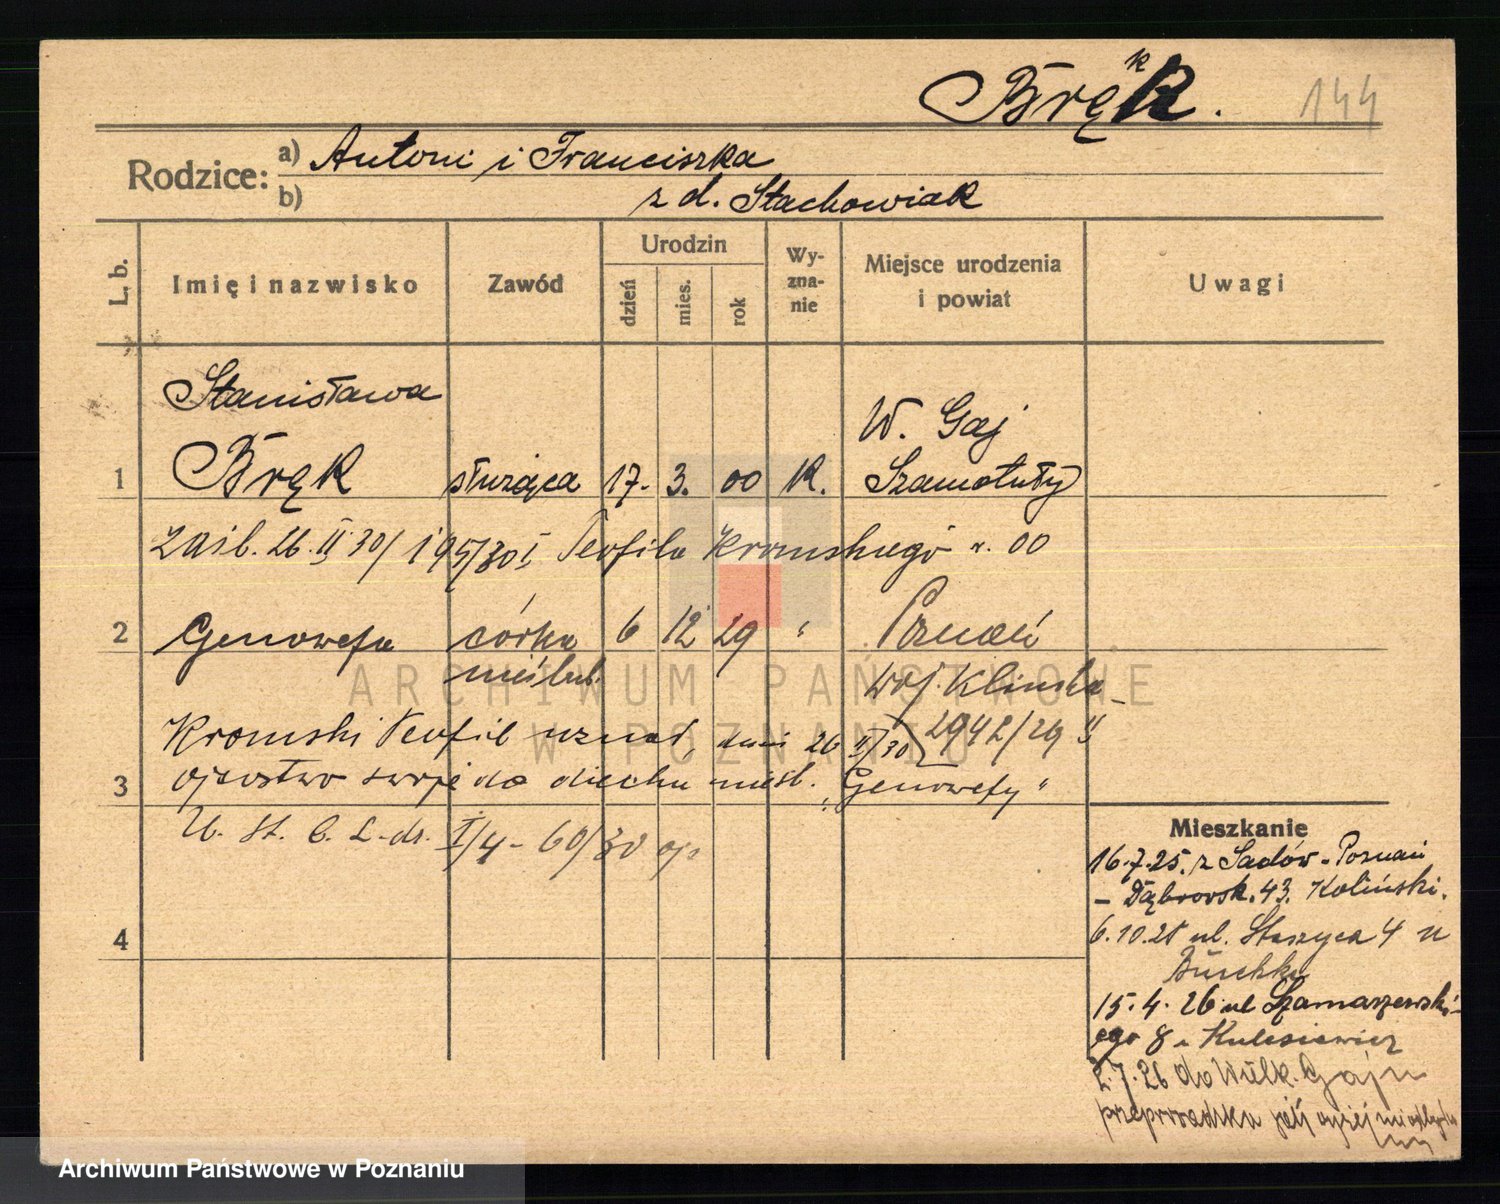 Bręk.
144
Rodzice: a) Antoni i Franciszka
b) z d. Stachowiak
L. b.
Imię i nazwisko
Zawód
Urodzin
dzień
mies.
rok
Wy-
zna-
nie
Miejsce urodzenia
i powiat
Uwagi
Stanisława
W. Gaj
1 Bręk służąca 17. 3. 00 K. Szamotuły
zaśl. 26. II 30/195/30 I Teofila Kromskiego r. 00
2 Genowefa córka 6 12 29 " Poznań
nieślub. woj. Klinika
Kromski Teofil uznał, dnia 26 II/30 2942/29 II
3 ojcostwo swoje do dziecka nieśl. „Genowefy"
U. St. C. L. dz. I/4 - 60/30
4
Mieszkanie
16.7.25. z Sadów - Poznań
- Dąbrowsk. 43. Koliński.
6.10.25 ul. Staszyca 4 u
15.4.26 ul Szamarzewski-
ego 8 u Kulesiewicz
2.7.26 do Wielk. Gaju
przeprowadzka jej
ARCHIWUM PAŃSTWOWE
W POZNANIU
Archiwum Państwowe w Poznaniu